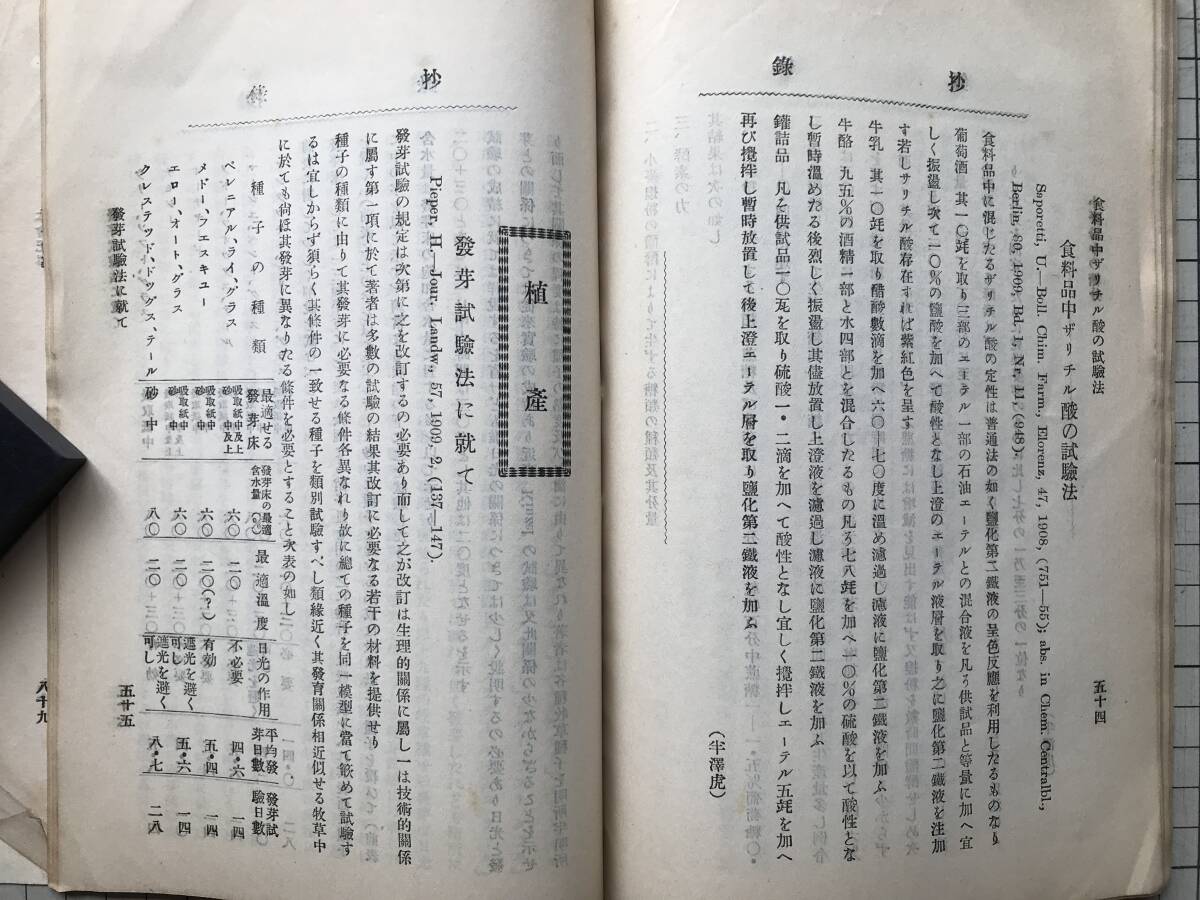 食料品中ザリチル酸の試驗法
五十四
抄
錄
食料品中ザリチル酸の試驗法
Saporetti, U.—Boll. Chim. Farm., Florenz, 47, 1908, (751—55); abs. in Chem. Centralbl.,
Berlin, 80, 1909, Bd. I, Nr. 11, (948).
食料品中に混じたるザリチル酸の定性は普通法の如く鹽化第二鐵液の呈色反應を利用したるものなり
葡萄酒 其一〇竓を取り三部のエーテル一部の石油エーテルとの混合液を凡り供試品と等量に加へ宜
しく振盪し次て一〇％の鹽酸を加へて酸性となし上澄のエーテル液層を取り之に鹽化第二鐵液を注加
す若しサリチル酸存在すれば紫紅色を呈す
牛乳 其一〇竓を取り醋酸數滴を加へ六〇—七〇度に溫め濾過し濾液に鹽化第二鐵液を加ふ
牛酪 九五％の酒精一部と水四部とを混合したるもの凡ろ七八竓を加へ一〇％の硫酸を以て酸性とな
し暫時溫めたる後烈しく振盪し其儘放置し上澄液を濾過し濾液に鹽化第二鐵液を加ふ
罐詰品 凡る供試品一〇瓦を取り硫酸一・二滴を加へて酸性となし宜しく攪拌しエーテル五竓を加へ
再び攪拌し暫時放置して後上澄エーテル層を取り鹽化第二鐵液を加ふ
（半澤虎）
抄
錄
植產
發芽試驗法に就て
Pieper, H.—Jour. Landw., 57, 1909, 2, (137—147).
發芽試驗の規定は次第に之を改訂するの必要あり而して之が改訂は生理的關係に屬し一は技術的關係
に屬す第一項に於て著者は多數の試驗の結果其改訂に必要なる若干の材料を提供せり
種子の種類に由りて其發芽に必要なる條件各異なれり故に總ての種子を同一模型に當て嵌めて試驗す
るは宜しからず須らく其條件の一致せる種子を類別試驗すべし類緣近く其發育關係相近似せる牧草中
に於ても尙ほ其發芽に異なりたる條件を必要とすること次表の如し
種子の種類 最適せる發芽床 發芽床の最適含水量（％） 最適溫度 日光の作用 平均發芽日數 發芽試驗日數
ペレニアル、ライ、グラス 吸取紙中及上砂中 六〇 二〇 不必要 四・六 一四
メドー、フェスキユー 吸取紙中砂中 六〇 二〇（？） 有効 五・四 一四
エロー、オート、グラス 吸取紙中砂中 六〇 二〇＋三〇 遮光を避く可し 五・六 一四
クレステッド、ドッグス、テール 砂中 八〇 二〇＋三〇 遮光を避く可し 八・七 二八
發芽試驗法に就て
五十五
八十九